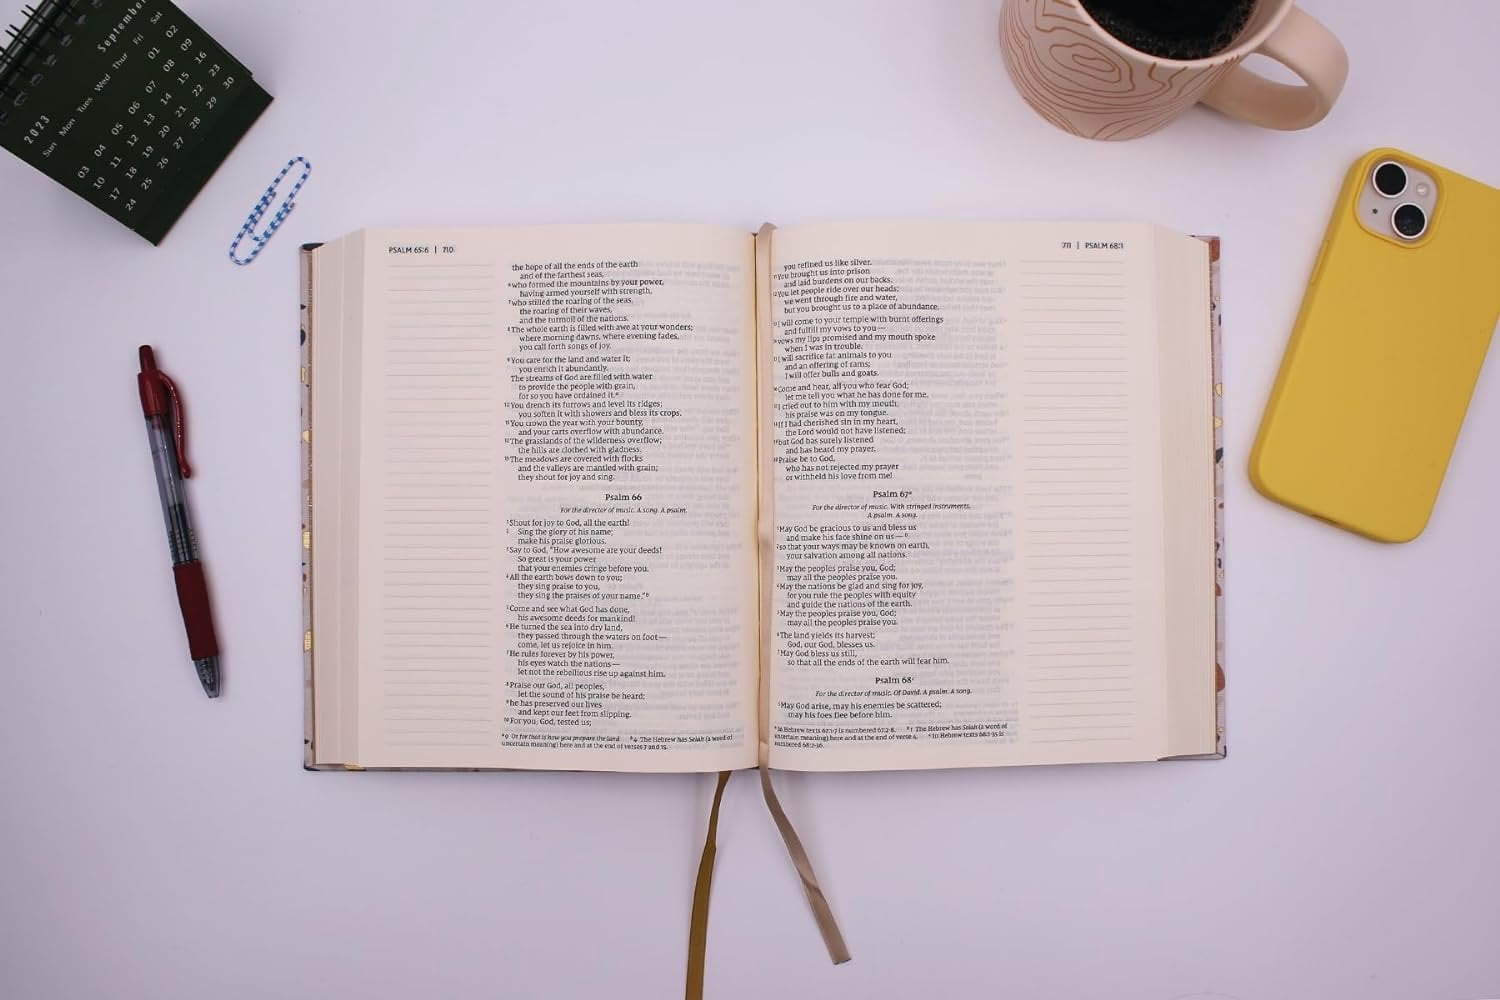 September
2023
Sun Mon Tues Wed Thur Fri Sat
01 02
03 04 05 06 07 08 09
10 11 12 13 14 15 16
17 18 19 20 21 22 23
24 25 26 27 28 29 30
PSALM 65:6 | 710
the hope of all the ends of the earth
and of the farthest seas,
6who formed the mountains by your power,
having armed yourself with strength,
7who stilled the roaring of the seas,
the roaring of their waves,
and the turmoil of the nations.
8The whole earth is filled with awe at your wonders;
where morning dawns, where evening fades,
you call forth songs of joy.
9You care for the land and water it;
you enrich it abundantly.
The streams of God are filled with water
to provide the people with grain,
for so you have ordained it.a
10You drench its furrows and level its ridges;
you soften it with showers and bless its crops.
11You crown the year with your bounty,
and your carts overflow with abundance.
12The grasslands of the wilderness overflow;
the hills are clothed with gladness.
13The meadows are covered with flocks
and the valleys are mantled with grain;
they shout for joy and sing.
Psalm 66
For the director of music. A song. A psalm.
1Shout for joy to God, all the earth!
2 Sing the glory of his name;
make his praise glorious.
3Say to God, "How awesome are your deeds!
So great is your power
that your enemies cringe before you.
4All the earth bows down to you;
they sing praise to you,
they sing the praises of your name."b
5Come and see what God has done,
his awesome deeds for mankind!
6He turned the sea into dry land,
they passed through the waters on foot—
come, let us rejoice in him.
7He rules forever by his power,
his eyes watch the nations—
let not the rebellious rise up against him.
8Praise our God, all peoples,
let the sound of his praise be heard;
9he has preserved our lives
and kept our feet from slipping.
10For you, God, tested us;
a9 Or for that is how you prepare the land b4 The Hebrew has Selah (a word of
uncertain meaning) here and at the end of verses 7 and 15.
711 | PSALM 68:1
you refined us like silver.
11You brought us into prison
and laid burdens on our backs.
12You let people ride over our heads;
we went through fire and water,
but you brought us to a place of abundance.
13I will come to your temple with burnt offerings
and fulfill my vows to you—
14vows my lips promised and my mouth spoke
when I was in trouble.
15I will sacrifice fat animals to you
and an offering of rams;
I will offer bulls and goats.
16Come and hear, all you who fear God;
let me tell you what he has done for me.
17I cried out to him with my mouth;
his praise was on my tongue.
18If I had cherished sin in my heart,
the Lord would not have listened;
19but God has surely listened
and has heard my prayer.
20Praise be to God,
who has not rejected my prayer
or withheld his love from me!
Psalm 67a
For the director of music. With stringed instruments.
A psalm. A song.
1May God be gracious to us and bless us
and make his face shine on us—b
2so that your ways may be known on earth,
your salvation among all nations.
3May the peoples praise you, God;
may all the peoples praise you.
4May the nations be glad and sing for joy,
for you rule the peoples with equity
and guide the nations of the earth.
5May the peoples praise you, God;
may all the peoples praise you.
6The land yields its harvest;
God, our God, blesses us.
7May God bless us still,
so that all the ends of the earth will fear him.
Psalm 68c
For the director of music. Of David. A psalm. A song.
1May God arise, may his enemies be scattered;
may his foes flee before him.
a In Hebrew texts 67:1-7 is numbered 67:2-8. b1 The Hebrew has Selah (a word of
uncertain meaning) here and at the end of verse 4. c In Hebrew texts 68:1-35 is
numbered 68:2-36.